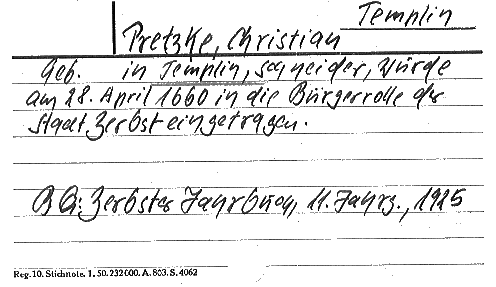 Templin
Pretzke, Christian
Geb. in Templin, Schneider, wurde
am 28. April 1660 in die Bürgerrolle der
Stadt Zerbst eingetragen.
B Q: Zerbster Jahrbuch, 11. Jahrg., 1925
Reg. 10. Stichnote. 1. 50. 232000. A. 803. S. 4062